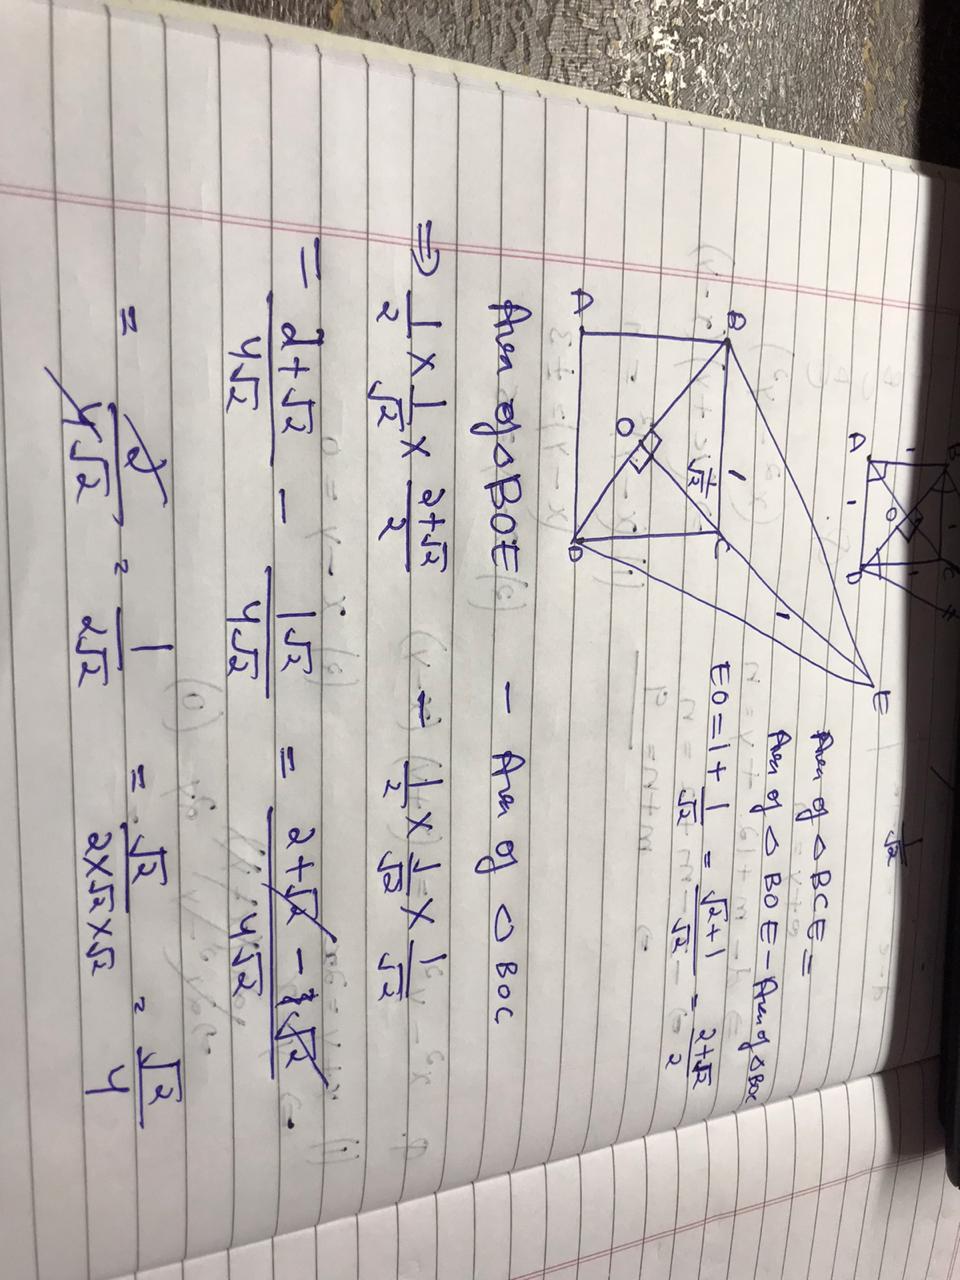 B
C
A
D
O
1
1
1
1
E
B
C
A
D
O
1
1
1/√2
1/√2
Area of △ BCE =
Area of △ BOE - Area of △ BOC
EO = 1 + 1/√2 = √2+1/√2 = 2+√2/2
Area of △ BOE - Area of △ BOC
⇒ 1/2 × 1/√2 × 2+√2/2 - 1/2 × 1/√2 × 1/√2
= 2+√2/4√2 - 1√2/4√2 = 2+√2 - √2/4√2
= 2/4√2 = 1/2√2 = √2/2×√2×√2 = √2/4